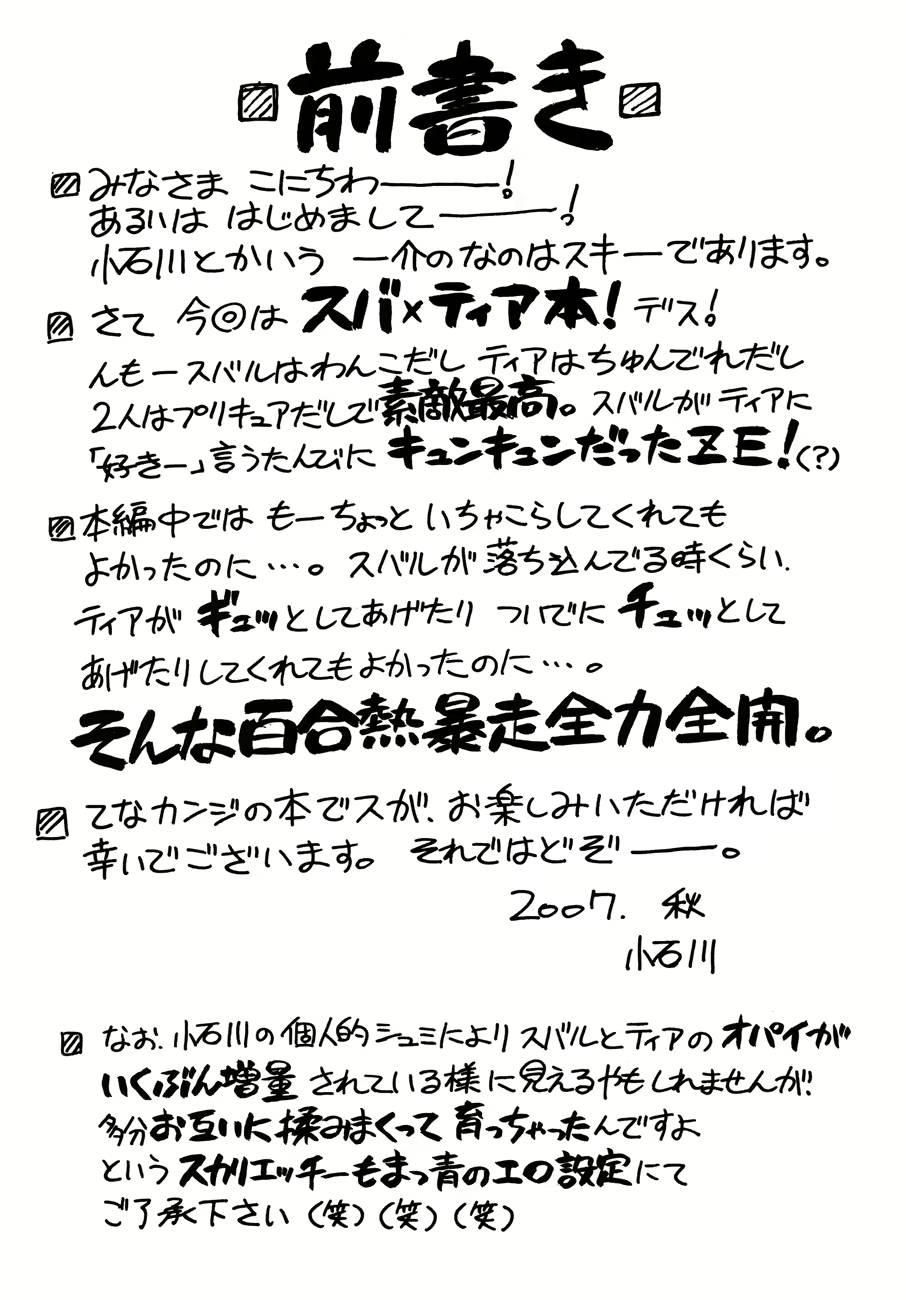 前書き
みなさま こにちわ――――!
あるいは はじめまして――――!
小石川とかいう 一介のなのはスキーであります。
さて 今◎は スバ×ティア本! デス!
んもースバルはわんこだし ティアはちゅんでれだし
2人はプリキュアだしで素敵最高。 スバルがティアに
「好きー」言うたんびに キュンキュンだったZE!(?)
本編中では もーちょっと いちゃこらしてくれても
よかったのに…。 スバルが 落ち込んでる時くらい.
ティアが ギュッとしてあげたり ついでに チュッとして
あげたりしてくれてもよかったのに…。
そんな百合熱暴走全力全開。
てなカンジの本でスが、お楽しみいただければ
幸いでございます。 それではどぞ――。
2007. 秋
小石川
なお、小石川の個人的シュミにより スバルとティアの オパイが
いくぶん増量 されている様に見えるやもしれませんが!
多分お互いに揉みまくって育っちゃったんですよ
という スカリエッチーもまっ青のエロ設定にて
ご了承下さい (笑) (笑) (笑)